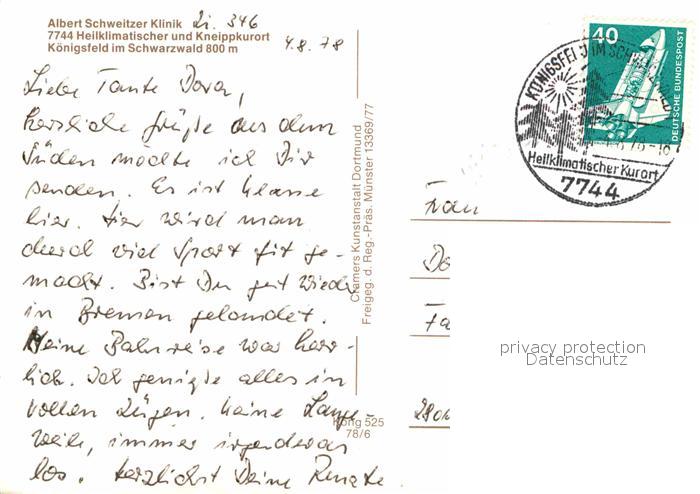 Albert Schweitzer Klinik Zi. 346
7744 Heilklimatischer und Kneippkurort
Königsfeld im Schwarzwald 800 m
4.8.78
Liebe Tante Dora,
herzliche Grüße aus dem
Süden möchte ich Dir
senden. Es ist klasse
hier. Hier wird man
durch viel Sport fit ge-
macht. Bist Du gut wieder
in Bremen gelandet.
Meine Bahnreise war herr-
lich. Ich genieße alles in
vollen Zügen. Keine Lange-
weile, immer irgendwas
los. Herzlichst Deine Renate.
Cramers Kunstanstalt Dortmund
Freigeg. d. Reg.-Präs. Münster 13369/77
König 525
78/6
40
DEUTSCHE BUNDESPOST
KÖNIGSFELD IM SCHWARZWALD
Heilklimatischer Kurort
7744
Frau
Do
Fa
280
privacy protection
Datenschutz